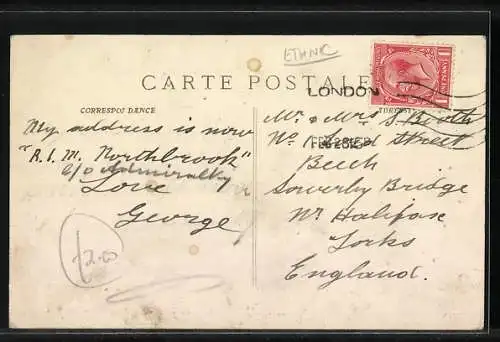 ETHNIC
CARTE POSTALE
LONDON
CORRESPONDANCE
My address is now
"R.I.M. Northbrook"
c/o Admiralty
Love
George
12.00
Mr. & Mrs S. Booth
No Street
Beech
Sowerby Bridge
Nr Halifax
Yorks
England.